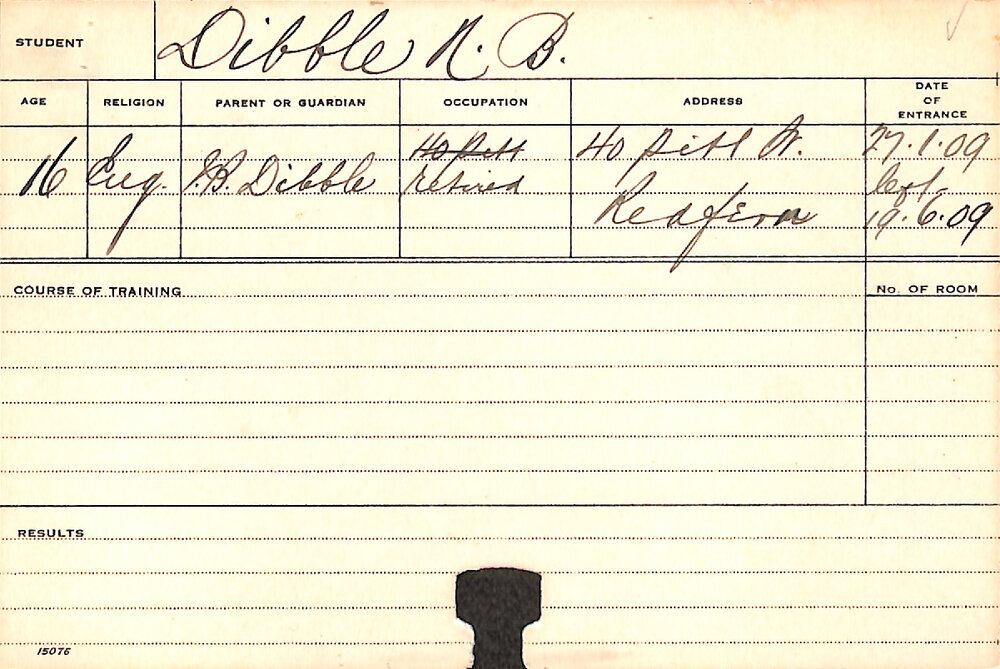 STUDENT Dibble N. B.
AGE RELIGION PARENT OR GUARDIAN OCCUPATION ADDRESS DATE OF ENTRANCE
16 Eng. J.B. Dibble 40 Pitt retired 40 Pitt St. Redfern 27.1.09 left 19.6.09
COURSE OF TRAINING No. OF ROOM
RESULTS
15076